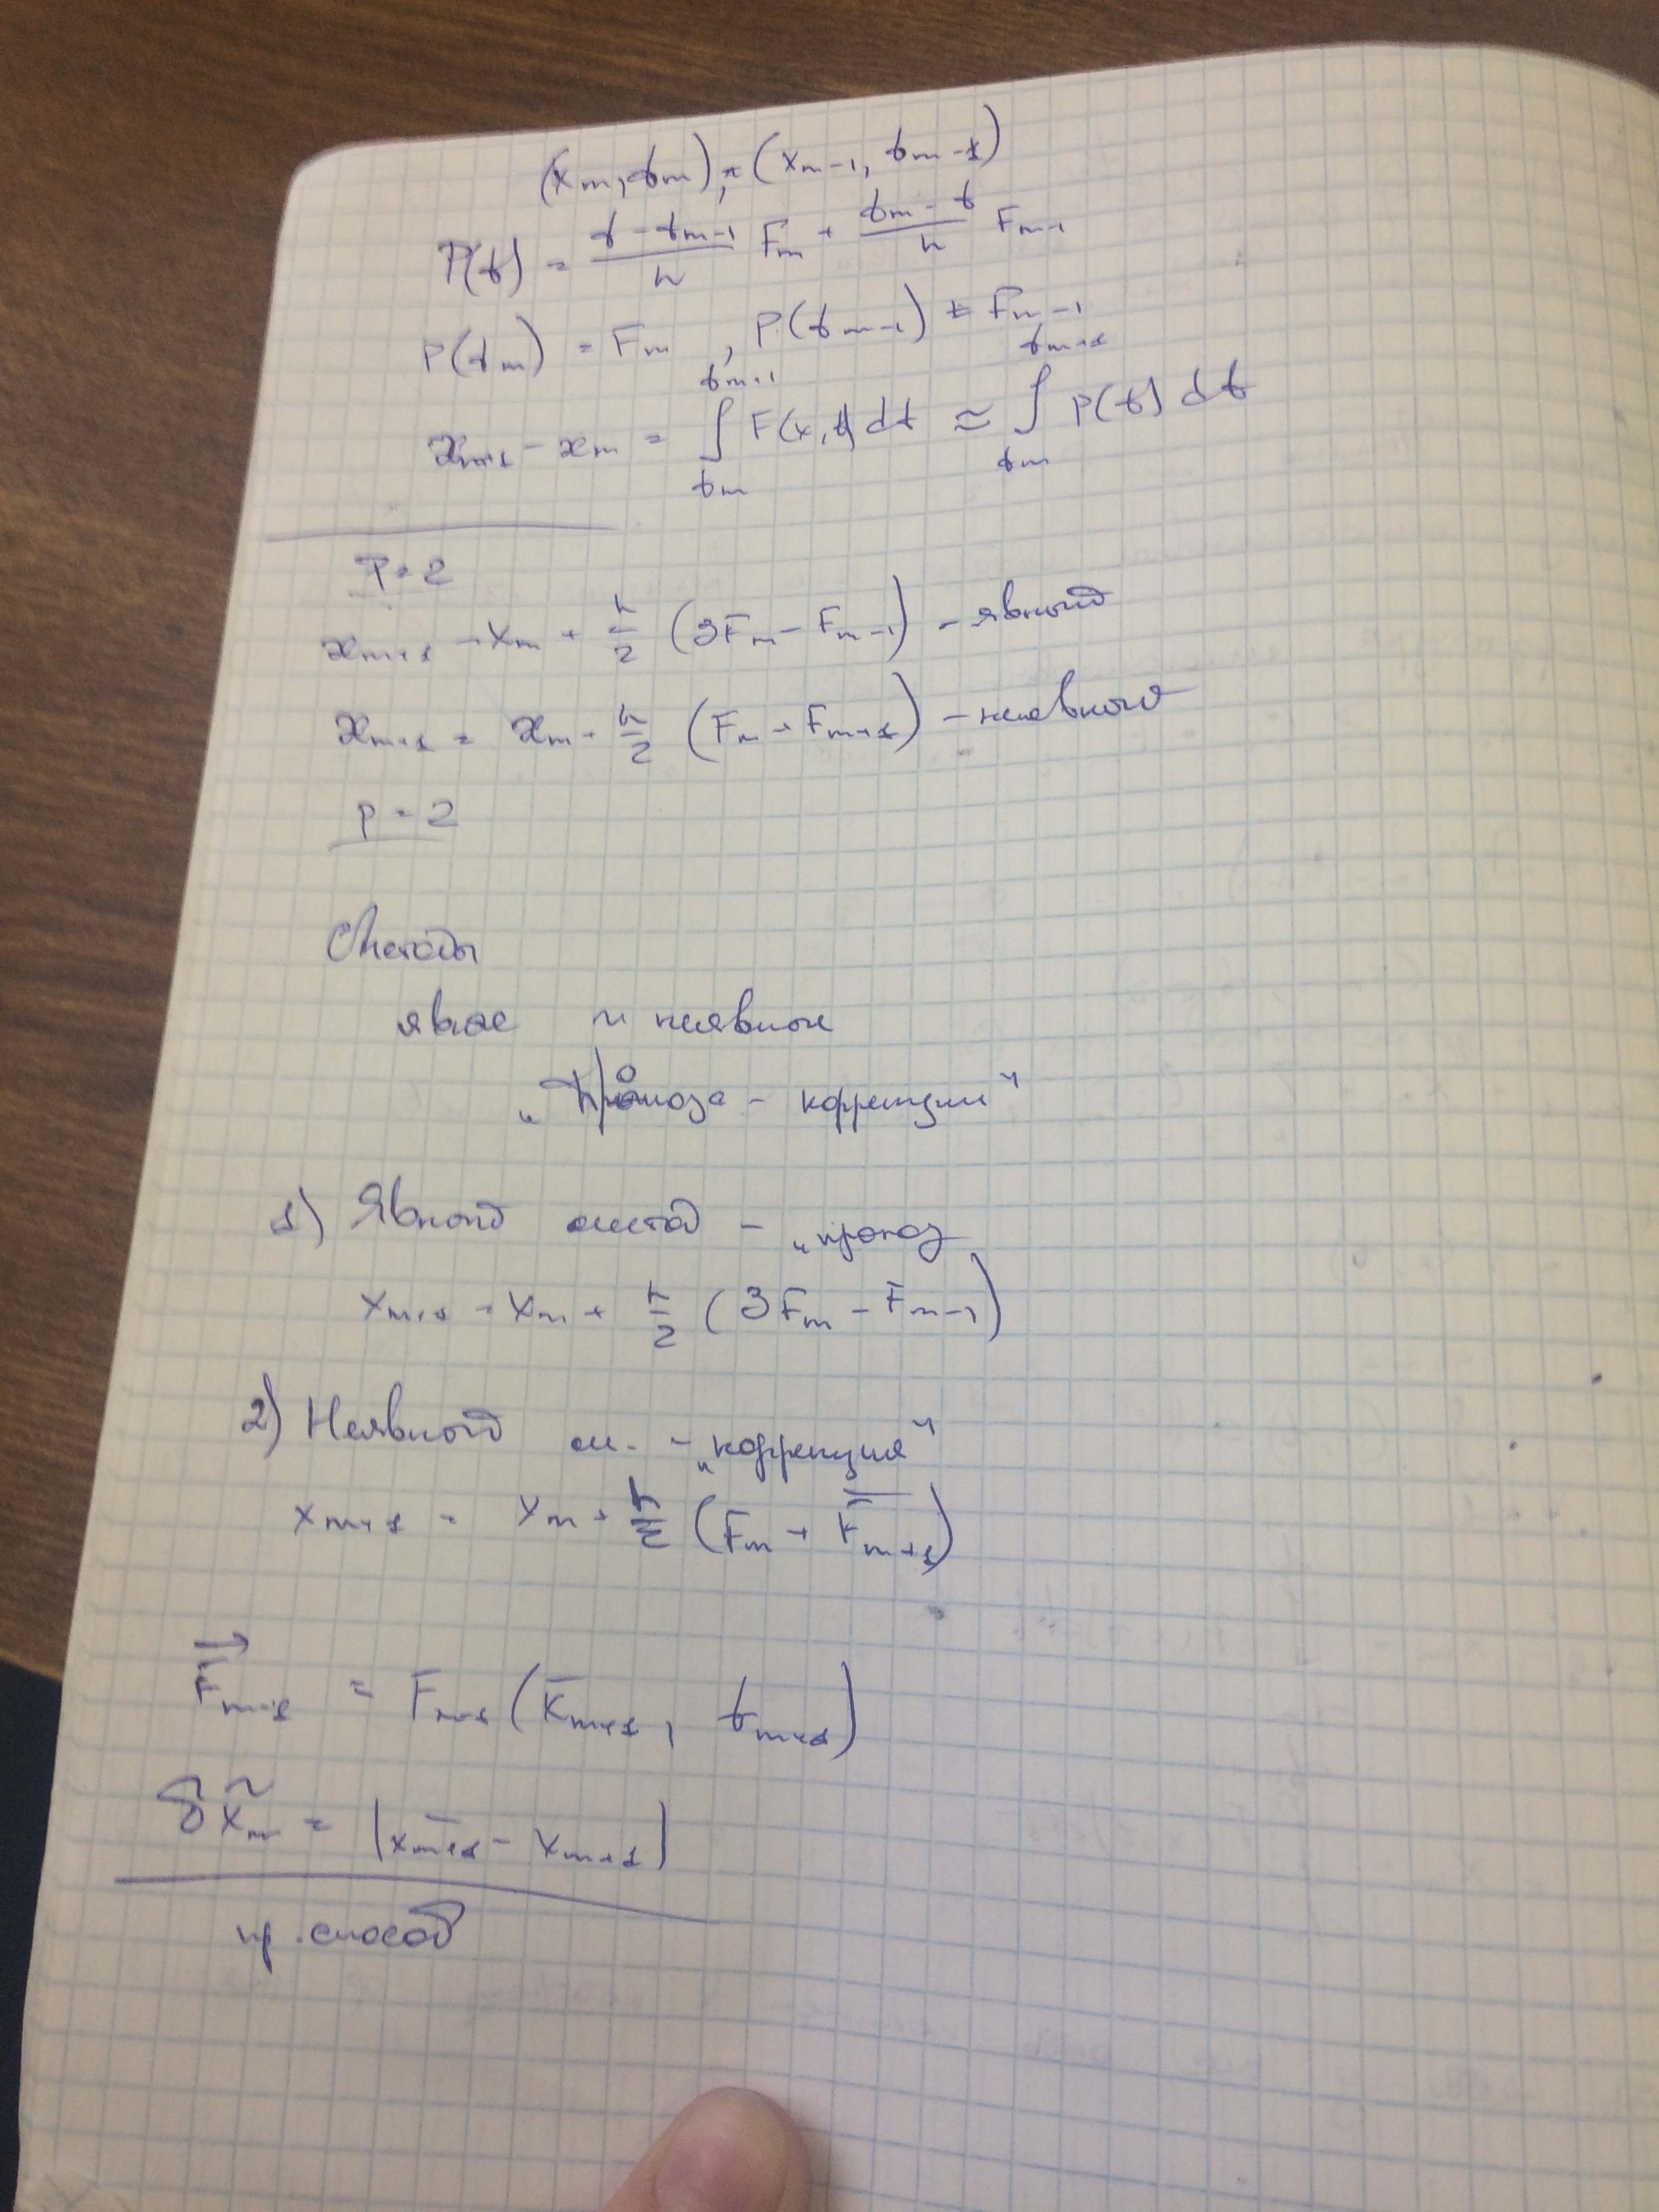 (x_m, t_m), (x_{m-1}, t_{m-1})
P(t) = \frac{t - t_{m-1}}{h} F_m + \frac{t_m - t}{h} F_{m-1}
P(t_m) = F_m, P(t_{m-1}) = F_{m-1}
x_{m+1} - x_m = \int_{t_m}^{t_{m+1}} F(x,t) dt ≈ \int_{t_m}^{t_{m+1}} P(t) dt
P = 2
x_{m+1} = x_m + \frac{h}{2} (3F_m - F_{m-1}) - явный
x_{m+1} = x_m + \frac{h}{2} (F_m + F_{m+1}) - неявного
p = 2
Методы
явные и неявные
„Прогноза - коррекции"
1) Явный метод - „прогноз
x_{m+1} = x_m + \frac{h}{2} (3F_m - F_{m-1})
2) Неявный м. - „коррекция"
x_{m+1} = x_m + \frac{h}{2} (F_m + \overline{F}_{m+1})
\vec{F}_{m+1} = F_{m+1} (\overline{x}_{m+1}, t_{m+1})
δ\tilde{x}_m = |\overline{x}_{m+1} - x_{m+1}|
способ